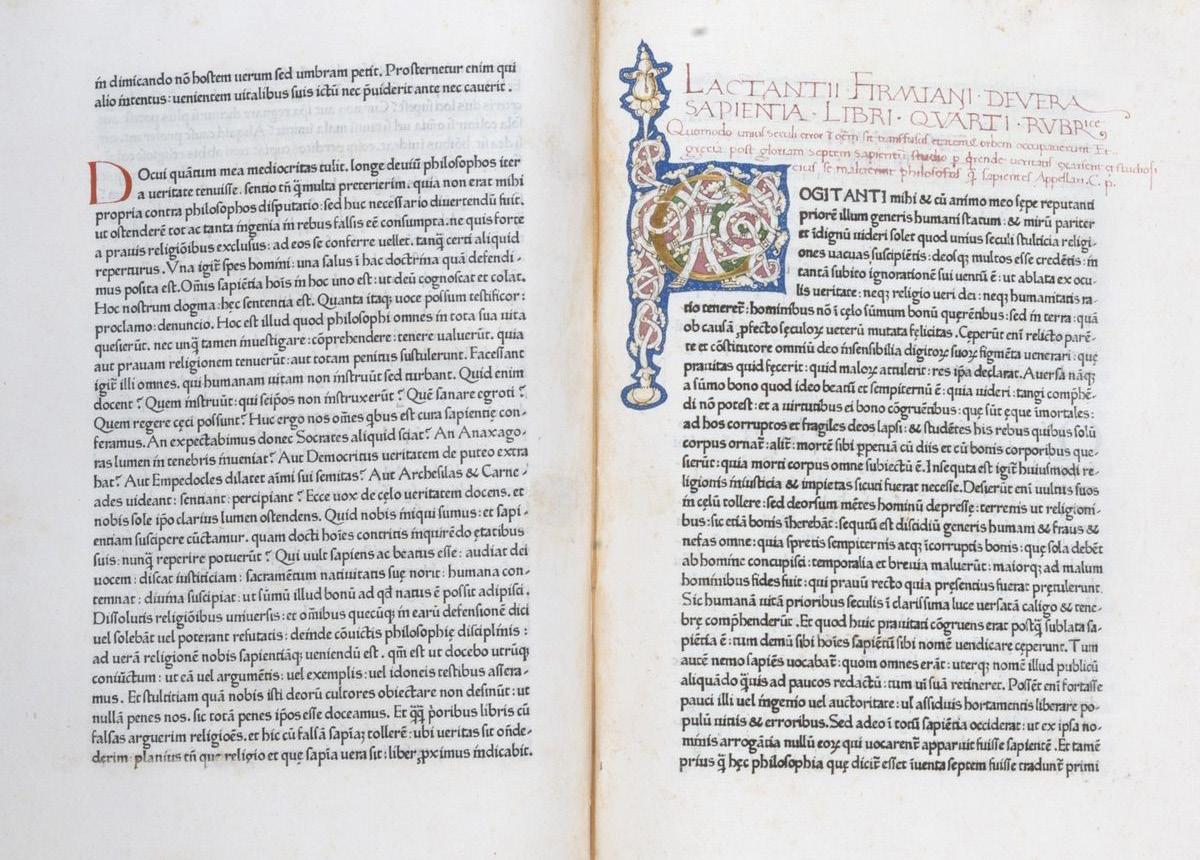 in dimicando nō hostem uerum sed umbram petit. Prosternetur enim qui
alio intentus: uenientem uitalibus suis ictū nec p̄uiderit ante nec cauerit.
DOcui quātum mea mediocritas tulit. longe deuiū philosophos iter
a ueritate tenuisse. sentio tn̄ q̄multa preterierim. quia non erat mihi
propria contra philosophos disputatio: sed huc necessario diuertendū fuit.
ut ostenderē tot ac tanta ingenia in rebus falsis eē consumpta. ne quis forte
a prauis religiōibus exclusus: ad eos se conferre uellet. tanq̄ certi aliquid
reperturus. Vna igit̄ spes homini: una salus ī hac doctrina quā defendi-
mus posita est. Om̄is sapiētia hois in hoc uno est: ut deū cognoscat et colat.
Hoc nostrum dogma: hęc sententia est. Quanta itaq; uoce possum testificor:
proclamo: denuncio. Hoc est illud quod philosophi omnes in tota sua uita
quesierūt. nec unq̄ tamen inuestigare: cōprehendere: tenere ualuerūt. quia
aut prauam religionem tenuerūt: aut totam penitus sustulerunt. Facessant
igit̄ illi omnes. qui humanam uitam non instruūt sed turbant. Quid enim
docent? Quem instruūt: qui seipsos non instruxerūt? Quē sanare egroti?
Quem regere cęci possunt? Huc ergo nos om̄es qbus est cura sapientię con-
feramus. An expectabimus donec Socrates aliquid sciat? An Anaxago-
ras lumen in tenebris inueniat? Aut Democritus ueritatem de puteo extra
hat? Aut Empedocles dilatet aīmi sui semitas? Aut Archesilas & Carne-
ades uideant: sentiant: percipiant? Ecce uox de cęlo ueritatem docens. et
nobis sole ip̄o clarius lumen ostendens. Quid nobis iniqui sumus: et sapi-
entiam suscipere cūctamur. quam docti hoīes contritis inquirēdo ętatibus
suis: nunq̄ reperire potuerūt? Qui uult sapiens ac beatus esse: audiat dei
uocem: discat iusticiam: sacramētum natiuitatis suę norit: humana con-
temnat: diuina suscipiat: ut sūmū illud bonū ad qd natus ē possit adipisci.
Dissolutis religiōibus uniuersis: et om̄ibus quecūq; in earū defensionē dici
uel solebāt uel poterant refutatis: deinde cōuictis philosophię disciplinis:
ad uerā religionē nobis sapientiāq; ueniendū est. qm̄ est ut docebo utrūq;
coniūctum: ut eā uel argumētis: uel exemplis: uel idoneis testibus assera-
mus. Et stultitiam quā nobis isti deorū cultores obiectare non desinūt: ut
nullā penes nos. sic totā penes ip̄os esse doceamus. Et q̄q̄ p̄oribus libris cū
falsas arguerim religiōes. et hic cū falsā sapīaȝ tollerē: ubi ueritas sit onde-
derim: planius tn̄ que religio et que sapīa uera sit: liber ꝓximus indicabit.
LACTANTII FIRMIANI DE VERA
SAPIENTIA LIBRI QVARTI RVBRice
Quomodo unius seculi error
gręcia post gloriam septem sapientū studio
cius se maluerint philosophos q̄ sapientes Appellari. C. p.
COGITANTI mihi & cū animo meo sępe reputanti
priorē illum generis humani statum: & mirū pariter
et īdignū uideri solet quod unius seculi stulticia religi-
ones uacuas suscipiētis: deosq; multos esse credētis: in
tantā subito ignorationē sui uentū ē: ut ablata ex ocu-
lis ueritate: neq; religio ueri dei: neq; humanitatis ra-
tio teneret̄: hominibus nō ī cęlo sūmum bonū quęrentibus: sed in terra: quā
ob causā ꝓfecto sęculoꝝ ueterū mutata fęlicitas. Cęperūt enī relicto parē-
te et cōstitutore omniū deo insensibilia digitoꝝ suoꝝ figmēta uenerari: quę
prauitas quid fęcerit: quid maloꝝ attulerit: res ip̄a declarat. Auersa nāq;
a sūmo bono quod ideo beatū et sempiternū ē: quia uideri: tangi comp̄hē-
di nō potest: et a uirtutibus ei bono cōgruētibus: quę sūt ęque īmortales:
ad hos corruptos et fragiles deos lapsi: & studētes his rebus quibus solū
corpus ornat̄: alit̄: mortē sibi ꝑpetuā cū diis et cū bonis corporibus que-
sierūt: quia morti corpus omne subiectū ē. Insequta est igit̄ huiusmodi re-
ligionis iniusticia & impietas sicuti fuerat necesse. Desierūt enī uultus suos
in cęlū tollere: sed deorsum mētes hominū depressę: terrenis ut religioni-
bus: sic etiā bonis īherebāt: sequtū est discidiū generis humani & fraus &
nefas omne: quia spretis sempiternis atq; īcorruptis bonis: quę sola debēt
ab homine concupisci: temporalia et breuia maluerūt: maiorq; ad malum
hominibus fides fuit: qui prauū recto quia pręsentius fuerat prętulerunt.
Sic humanā uitā prioribus seculis ī clarissima luce uersatā caligo & tene-
brę comp̄henderūt. Et quod huic prauitati cōgruens erat postq̄ sublata sa-
piētia ē: tum demū sibi hoīes sapiētū sibi nomē uendicare cęperunt. Tum
autē nemo sapiēs uocabat̄: quom omnes erāt: uterq; nomē illud publicū
aliquādo q̄uis ad paucos redactū: tum uī suā retineret. Possēt enī fortasse
pauci illi uel ingenio uel auctoritate: ul̄ assiduis hortamentis liberare po-
pulū uitiis & erroribus. Sed adeo ī totū sapiētia occiderat: ut ex ipsa no-
minis arrogātia nullū eoꝝ qui uocarent̄ apparuit fuisse sapientē. Et tamē
prius q̄ hęc philosophia quę dicit̄ esset īuenta septem fuisse tradunt̄ primi